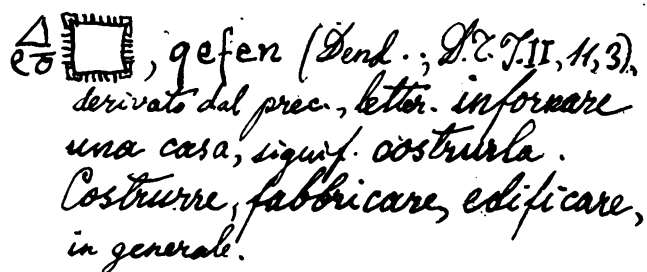 , qefen (Dend.; D.T.T.II, 11, 3),
derivato dal prec., letter. infornare
una casa, signif. costrurla.
Costrurre, fabbricare, edificare,
in generale.